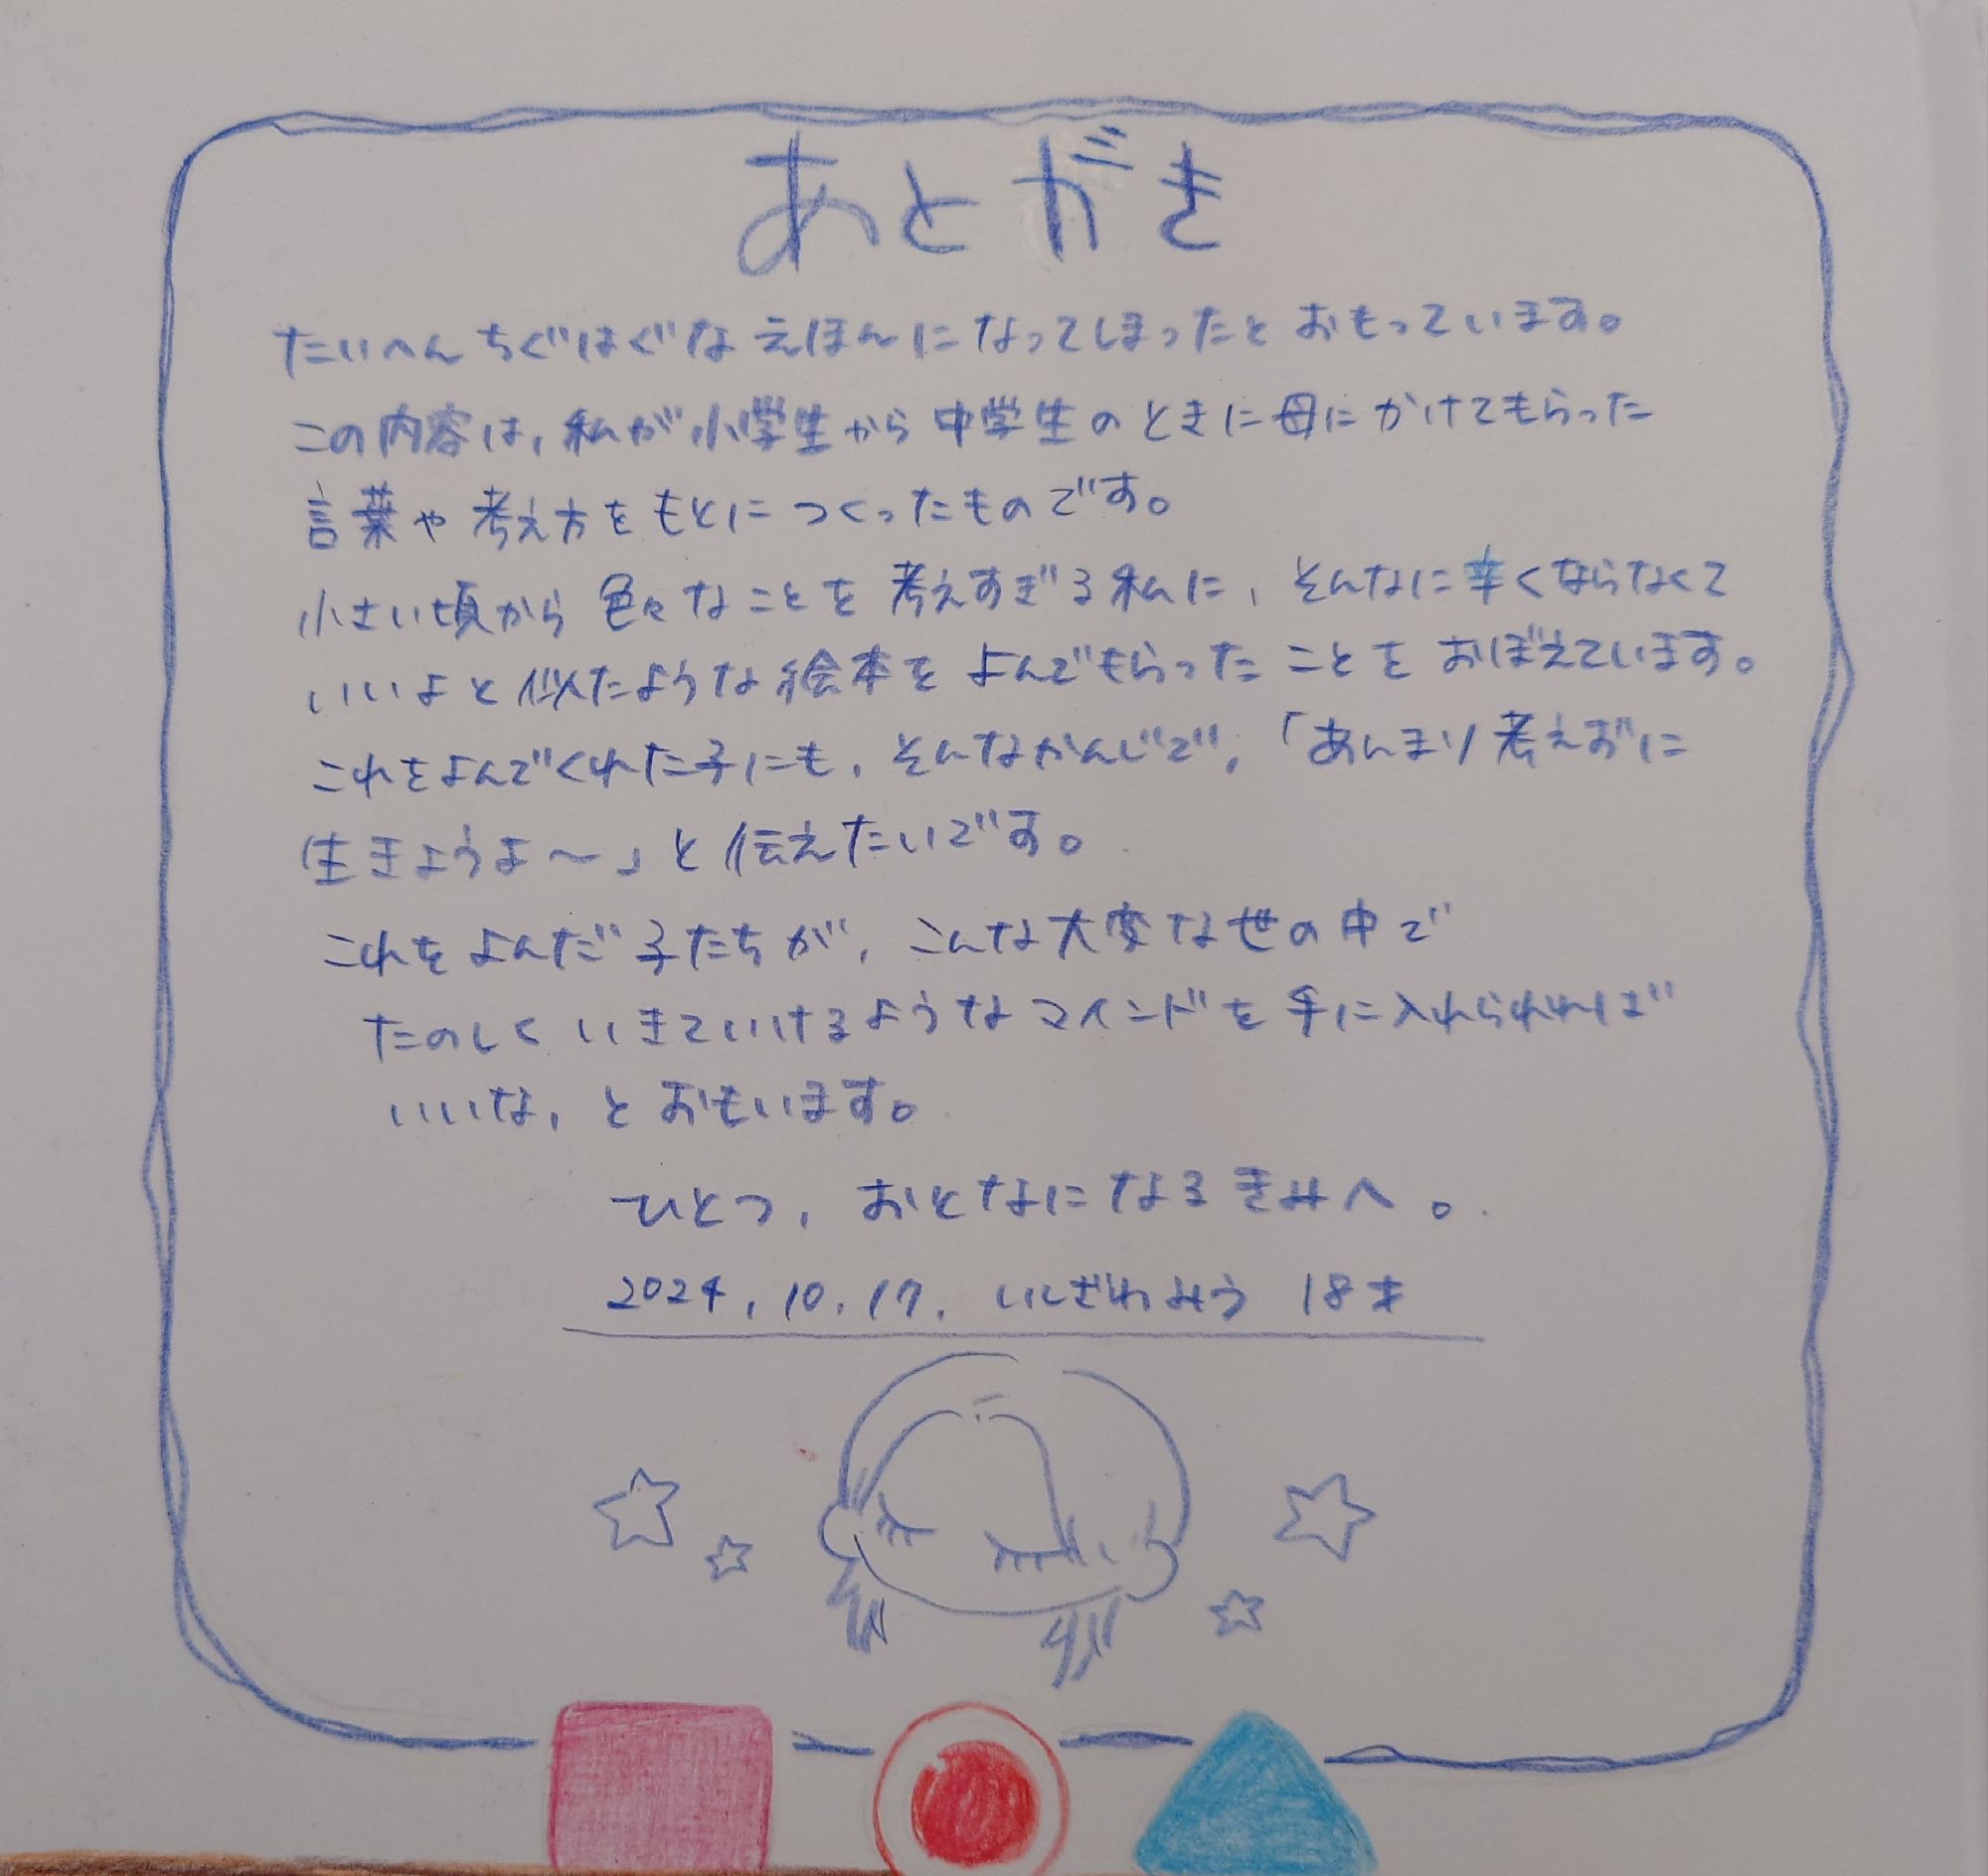 あとがき
たいへんちぐはぐなえほんになってしまったとおもっています。
この内容は、私が小学生から中学生のときに母にかけてもらった
言葉や考え方をもとにつくったものです。
小さい頃から色々なことを考えすぎる私に、そんなに辛くならなくて
いいよと似たような絵本をよんでもらったことをおぼえています。
これをよんでくれた子にも、そんなかんじで、「あんまり考えずに
生きようよ〜」と伝えたいです。
これをよんだ子たちが、こんな大変な世の中で
たのしくいきていけるようなマインドを手に入れられれば
いいな、とおもいます。
ひとつ、おとなになるきみへ。
2024.10.17. いしざわみう 18才